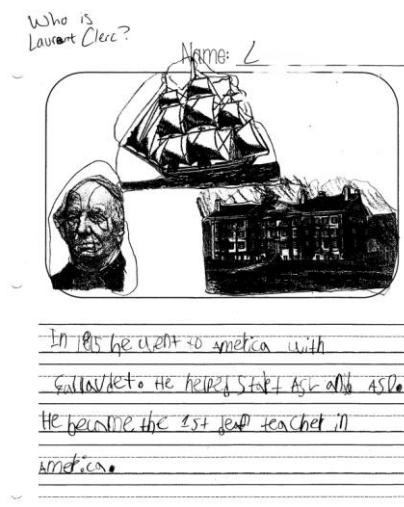 Who is
Laurent Clerc?
Name: L
In 1815 he went to America with
Gallaudet. He helped start ASL and ASD.
He became the 1st deaf teacher in
America.